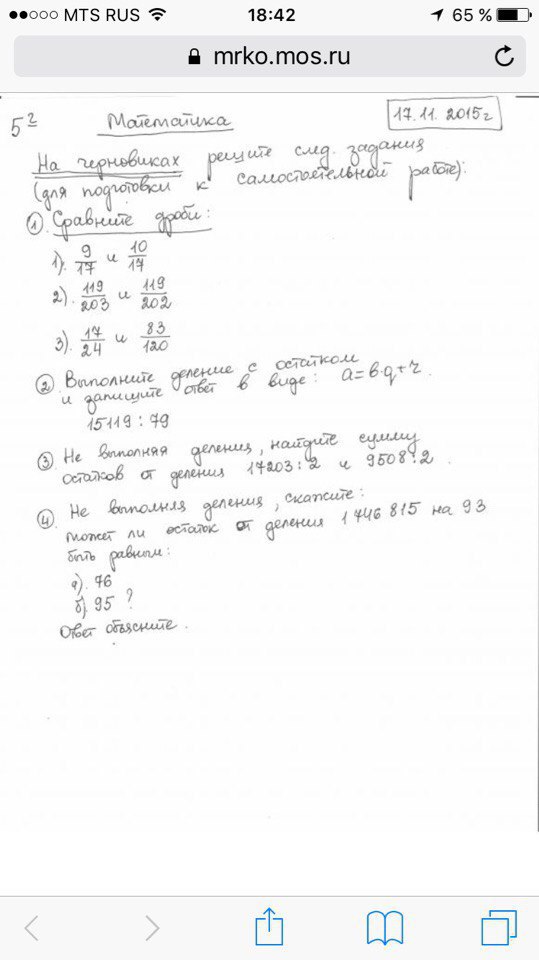 MTS RUS 18:42 65 %
mrko.mos.ru
5² Математика 17.11.2015г
На черновиках решите след. задания
(для подготовки к самостоятельной работе):
① Сравните дроби:
1). 9/17 и 10/17
2). 119/203 и 119/202
3). 17/24 и 83/120
② Выполните деление с остатком
и запишите ответ в виде: a=b·q+r.
15119:79
③ Не выполняя деления, найдите сумму
остатков от деления 17203:2 и 9508:2.
④ Не выполняя деления, скажите:
может ли остаток от деления 1746815 на 93
быть равным:
а). 76
б). 95 ?
Ответ объясните.